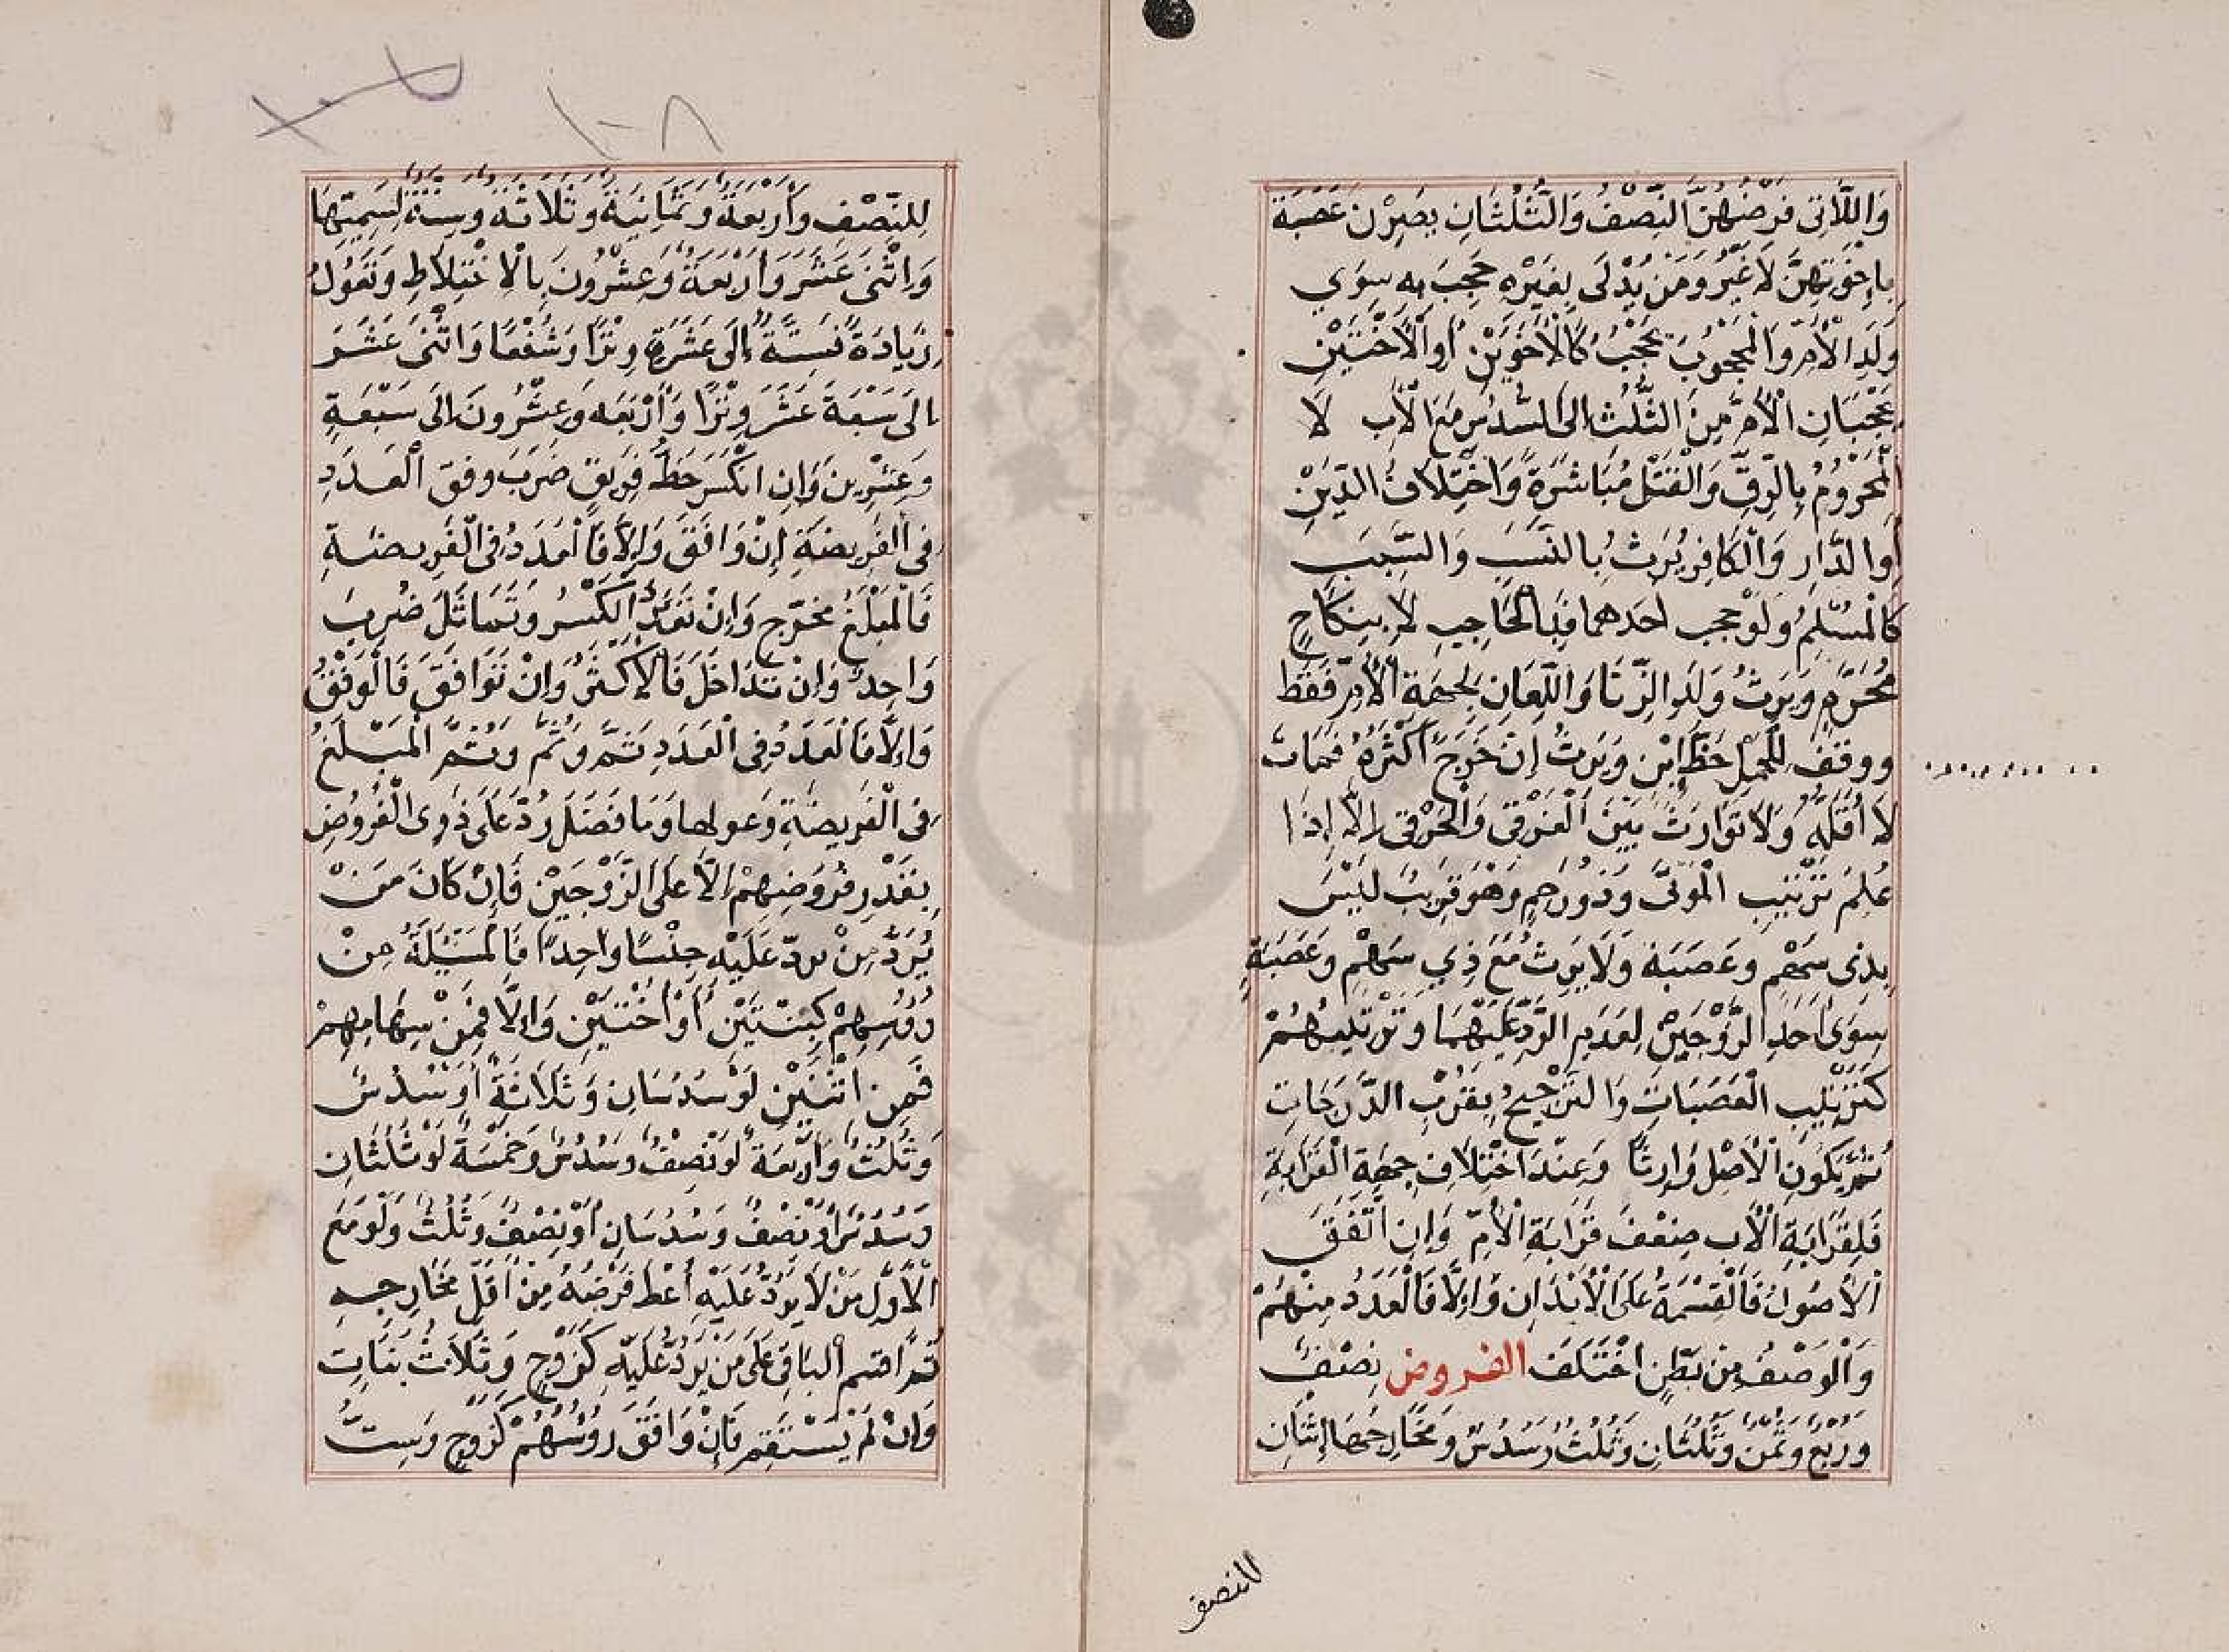 وَاللَّاتِى فَرْضُهُنَّ النِّصْفُ وَالثُّلُثَانِ يَصِرْنَ عَصَبَةً
بِإِخْوَتِهِنَّ لَا غَيْرُ وَمَنْ يُدْلَى بِغَيْرِهِ حُجِبَ بِهِ سِوَي
وَلَدِ الْأُمِّ وَالْمَحْجُوبُ يَحْجُبُ كَالْأَخَوَيْنِ أَوِ الْأُخْتَيْنِ
يَحْجُبَانِ الْأُمَّ مِنَ الثُّلُثِ إِلَى السُّدُسِ مَعَ الْأَبِ لَا
الْمَحْرُومُ بِالرِّقِّ وَالْقَتْلِ مُبَاشَرَةً وَاخْتِلَافُ الدِّيْنِ
أَوِ الدَّارِ وَالْكَافِرُ يُرَثُ بِالنَّسَبِ وَالسَّبَبِ
كَالْمُسْلِمِ وَلَوْ حجب أحدهما فَبِالْحَاجِبِ لَا بِنِكَاحٍ
مُحَرَّمٍ وَيَرِثُ وَلَدُ الزِّنَا وَاللِّعَانِ بِجِهَةِ الْأُمِّ فَقَطْ
ووقفَ لِلْحَمْلِ حَظُّ ابْنٍ وَيَرِثُ إِنْ خَرَجَ أَكْثَرُهُ فَمَاتَ
لَا أَقَلُّهُ وَلَا تَوَارَثَ بَيْنَ الْغَرْقَى وَالْحَرْقَى إِلَّا إِذَا
عُلِمَ تَرْتِيبُ الْمَوْتَى وَذُورَحِمٍ وَهُوَ قَرِيبٌ لَيْسَ
بِذِى سَهْمٍ وَعَصَبَة وَلَا يَرِثُ مَعَ ذِي سَهْمٍ وَعَصَبَةٍ
سِوَى أَحَدِ الزَّوْجَيْنِ لِعَدَمِ الرَّدِّ عَلَيْهِمَا وَتَرْتِيبُهُمْ
كَتَرْتِيبِ الْعَصَبَاتِ وَالتَّرْجِيحُ بِقُرْبِ الدَّرَجَاتِ
ثُمَّ بِكَوْنِ الْأَصْلِ وَارِثًا وَعِنْدَ اخْتِلَافِ جِهَةِ الْقَرَابَةِ
فَلِقَرَابَةِ الْأَبِ ضِعْفُ قَرَابَةِ الْأُمِّ وَإِنِ اتَّفَقَ
الْأُصُولُ فَالْقِسْمَةُ عَلَى الْأَبْدَانِ وَإِلَّا فَالْعَدَدُ مِنْهُمْ
وَالْوَصْفُ مِنْ بَطْنٍ اخْتَلَفَ الفروض نِصْفٌ
وَرُبُعٌ وَثُمُنٌ وَثُلُثَانِ وَثُلُثٌ وَسُدُسٌ وَمَخَارِجُهَا اثْنَانِ
للنصف
١٠٨
لِلنِّصْفِ وَأَرْبَعَةٌ وَثَمَانِيَةٌ وَثَلَاثَةٌ وَسِتَّةٌ لِسَمِيِّهَا
وَاثْنَى عَشَرَ وَأَرْبَعَةٌ وَعِشْرُونَ بِالْاخْتِلَاطِ وَتَعُولُ
زِيَادَةً فَسِتَّةٌ إِلَى عَشَرَةٍ وِتْرًا وَشَفْعًا وَاثْنَى عَشَرَ
إِلَى سَبْعَةَ عَشَرَ وِتْرًا وَأَرْبَعَة وَعِشْرُونَ إِلَى سَبْعَةٍ
وَعِشْرِينَ وَإِنِ انْكَسَرَ حَظُّ فَرِيقٍ ضَرَبَ وِفْقَ الْعَدَدِ
فِى الْفَرِيضَةِ إِنْ وَافَقَ وَإِلَّا فَالْعَدَدُ فِى الْفَرِيضَةِ
فَالْمَبْلَغُ مَخْرَجٌ وَإِنْ تَعَدَّدَ الْكَسْرُ وَتَمَاثَلَ ضُرِبَ
وَاحِدٌ وَإِنْ تَدَاخَلَ فَالْأَكْثَرُ وَإِنْ تَوَافَقَ فَالْوَفْقُ
وَإِلَّا فَالْعَدَدُ فِى الْعَدَدِ ثُمَّ وَثُمَّ وَثُمَّ الْمَبْلَغُ
فِى الْفَرِيضَةِ وَعَوْلِهَا وَمَا فَضَلَ رُدَّ عَلَى ذَوِى الْفُرُوضِ
بِقَدْرِ فُرُوضِهِمْ إِلَّا عَلَى الزَّوْجَيْنِ فَإِنْ كَانَ مَنْ
يُرَدُّ مِنْ يردّ عَلَيْهِ جِنْسًا وَاحِدًا فَالْمَسْئَلَةُ مِنْ
رُؤُسِهِمْ كَبِنْتَيْنِ أَوْ أُخْتَيْنِ وَإِلَّا فَمِنْ سِهَامِهِمْ
فَمِنِ اثْنَيْنِ لَوْ سُدُسَانِ وَثَلَاثَةٌ أَوْ سُدُسٌ
وَثُلُثٌ وَأَرْبَعَةٌ لَوْ نِصْفٌ وَسُدُسٌ وَخَمْسَةٌ لَوْ ثُلُثَانِ
وَسُدُسٌ أَوْ نِصْفٌ وَسُدُسَانِ أَوْ نِصْفٌ وَثُلُثٌ وَلَوْ مَعَ
الْأَوَّلِ مَنْ لَا يُرَدُّ عَلَيْهِ أُعْطِ فَرْضَهُ مِنْ أَقَلِّ مَخَارِجِهِ
ثُمَّ اقسم الْبَاقِى عَلَى مَنْ يُرَدُّ عَلَيْهِ كَزَوْجٍ وَثَلَاثُ بَنَاتٍ
وَإِنْ لَمْ يَسْتَقِمْ فَإِنْ وَافَقَ رُؤُسُهُمْ كَزَوْجٍ وَسِتُّ